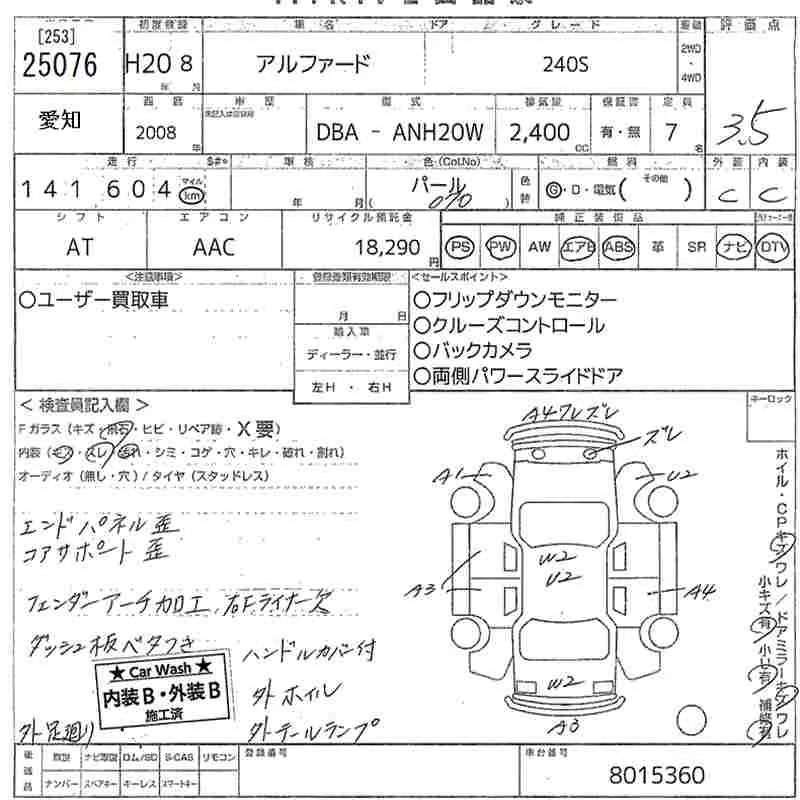 [253]
25076
初度登録
H20 8
年 月
車名
アルファード
ドア
グレード
240S
2WD
4WD
評価点
3.5
愛知
西暦
2008
年
車歴
型式
DBA - ANH20W
排気量
2,400
CC
保証書
有・無
定員
7
名
走行
141604
マイル
km
車検
年 月
色(Col.No)
パール
( 070 )
色替
燃料
G・D・電気( その他 )
外装
C
内装
C
シフト
AT
エアコン
AAC
リサイクル預託金
18,290
円
純正装備品
PS PW AW エアB ABS 革 SR ナビ DTV
<注意事項>
○ユーザー買取車
登録書類有効期限
月 日
輸入車
ディーラー・並行
左H ・ 右H
<セールスポイント>
○フリップダウンモニター
○クルーズコントロール
○バックカメラ
○両側パワースライドドア
<検査員記入欄>
Fガラス(キズ・飛石・ヒビ・リペア跡・X要)
内装(キズ・スレ・汚れ・シミ・コゲ・穴・キレ・破れ・割れ)
オーディオ(無し・穴)/タイヤ(スタッドレス)
エンドパネル歪
コアサポート歪
フェンダーアーチ加工、右Fライナー欠
ダッシュ板ベタつき
ハンドルカバー付
★ Car Wash ★
内装B・外装B
施工済
外ホイル
外足廻り
外テールランプ
キーロック
A4ワレズレ
ズレ
A1
U2
W2
U2
A3
A4
W2
A3
ホイル・CPキズワレ/ドアミラーキズワレ
小キズ有 小U有 補修有
後送品
取説 ナビ取説 ロム/SD S-CAS リモコン
ナンバー スペアキー キーレス スマートキー
登録番号
車台番号
8015360